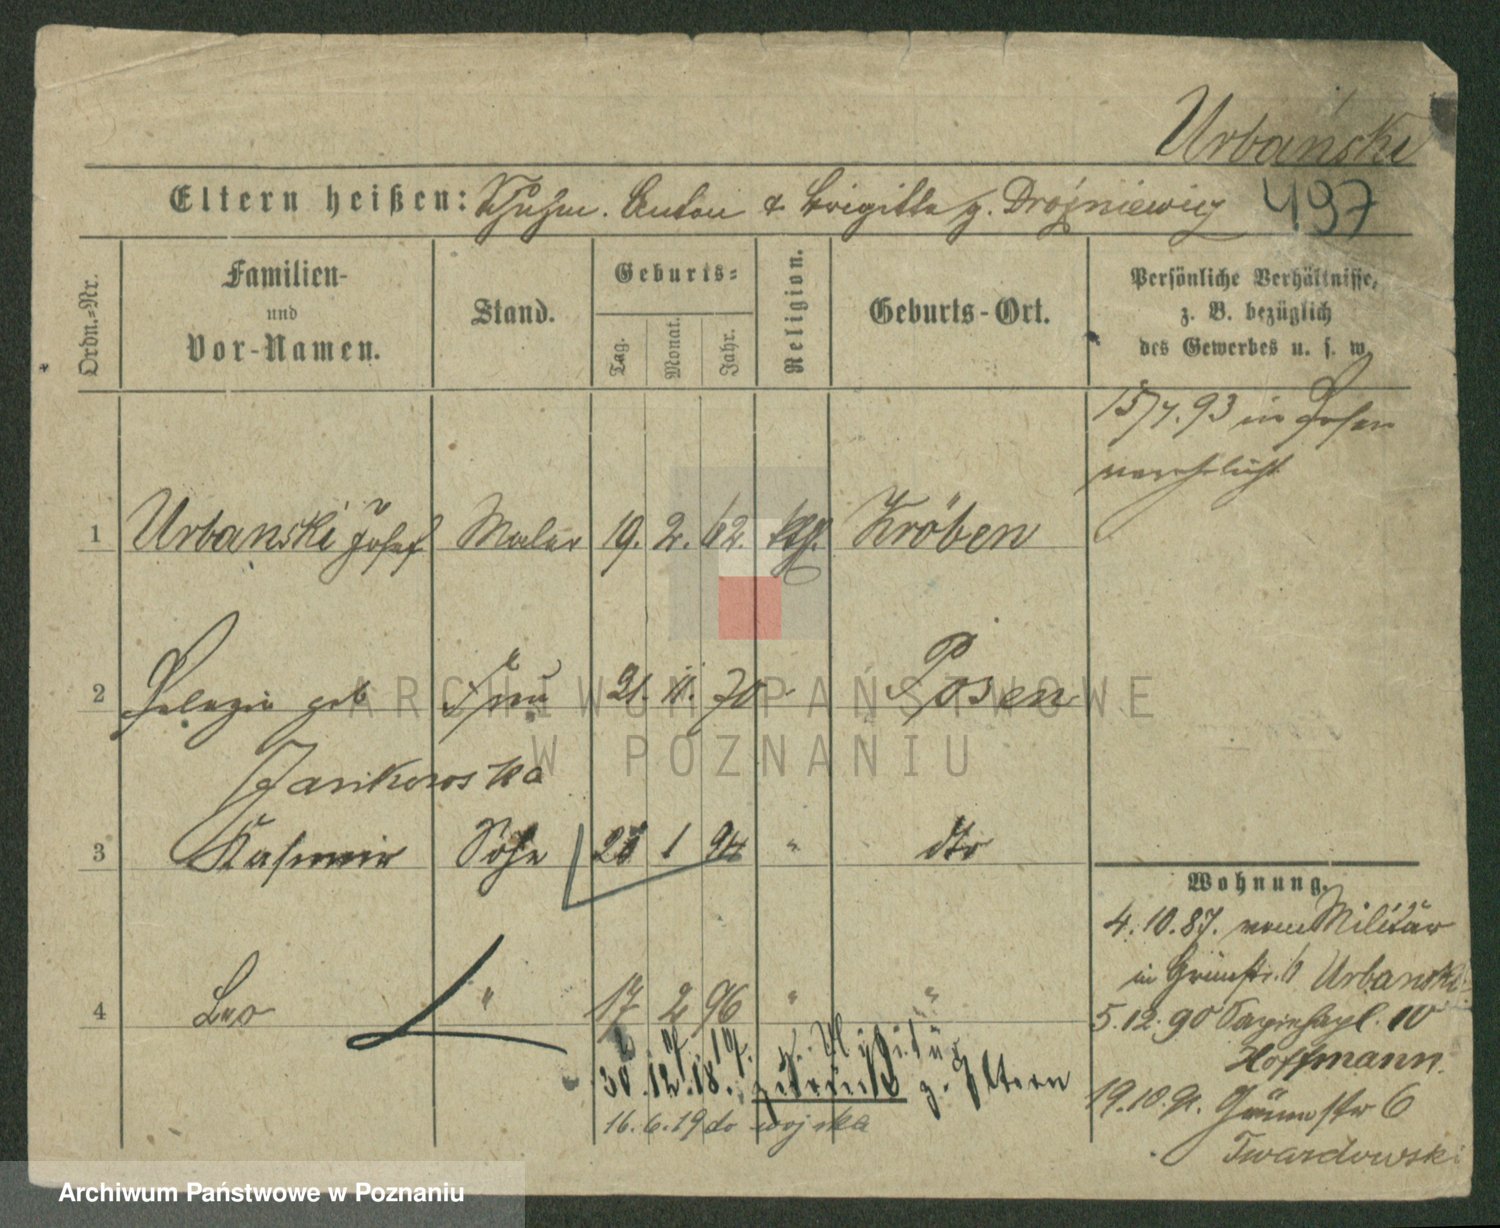 Urbański
Eltern heißen: Schuhm. Anton & Brigitta g. Dróżniewicz 497
Ordn.-Nr.
Familien-
und
Vor-Namen.
Stand.
Geburts-
Tag.
Monat.
Jahr.
Religion.
Geburts-Ort.
Persönliche Verhältnisse,
z. B. bezüglich
des Gewerbes u. s. w.
15/7.93 in Posen
verehelicht
1 Urbanski Josef Maler 19. 2. 62. kth. Kröben
2 Pelagia geb Frau 21. 11. 70 Posen
Jankowska
3 Kasimir Söhne 28 1 94 " dto
4 Leo " 17 2 96 " "
30.12.18. zurück z. Eltern
16.6.19 do wojska
Wohnung.
4.10.87. vom Militär
in Grünstr. 6 Urbanski
5.12.90 Sapiehapl. 10
Hoffmann.
19.10.91. Grünestr 6
Twardowski
ARCHIWUM PAŃSTWOWE
W POZNANIU
Archiwum Państwowe w Poznaniu